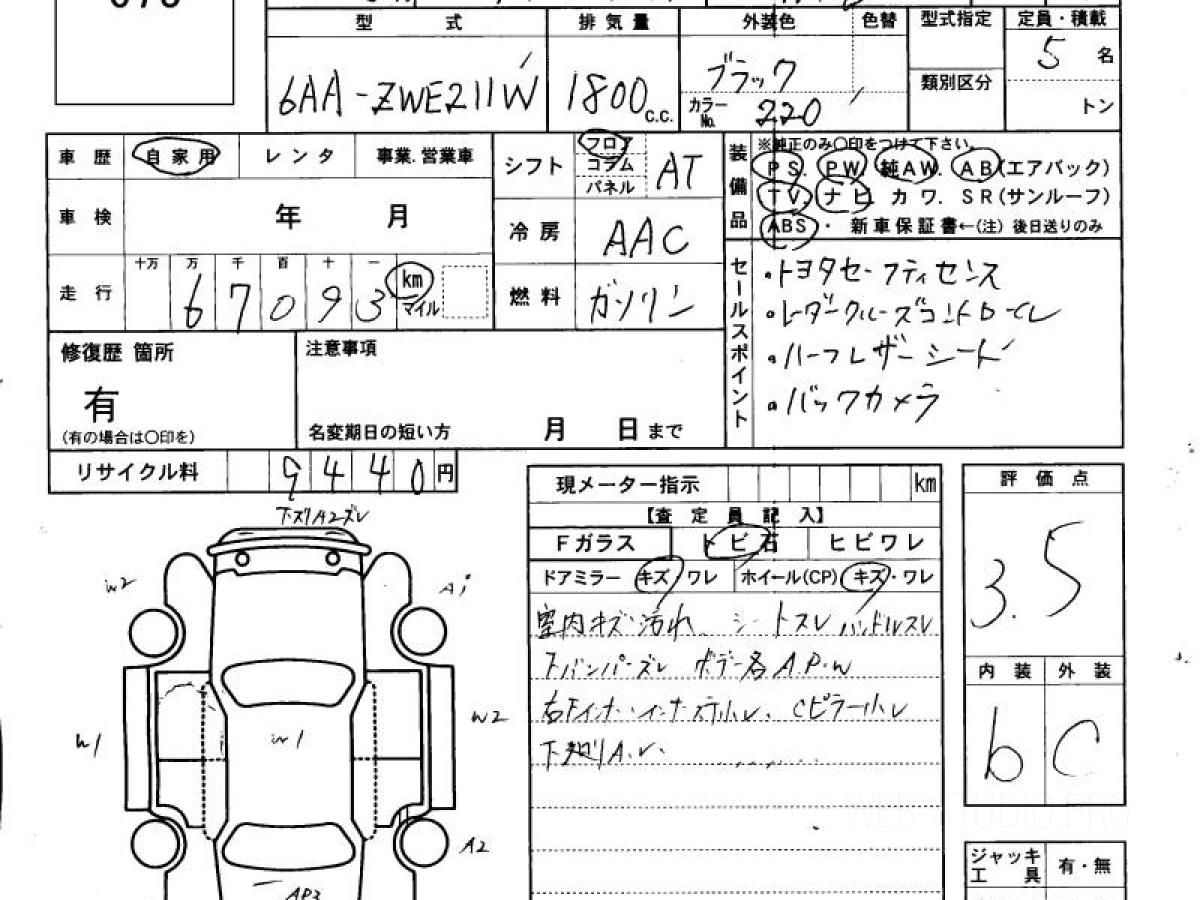 型 式 排気量 外装色 色替 型式指定 定員・積載
6AA-ZWE211W 1800 c.c. ブラック 5 名
カラーNo. 220 類別区分 トン
車歴 自家用 レンタ 事業.営業車 シフト フロア コラム パネル AT
装備品 ※純正のみ〇印をつけて下さい。
PS. PW. 純AW. AB(エアバック)
TV. ナビ カワ. SR(サンルーフ)
ABS・ 新車保証書←(注) 後日送りのみ
車検 年 月 冷房 AAC
走行 十万 万 千 百 十 一
67093 km マイル 燃料 ガソリン
セールスポイント
・トヨタセーフティセンス
・レーダークルーズコントロール
・ハーフレザーシート
・バックカメラ
修復歴 箇所 注意事項
有
(有の場合は〇印を) 名変期日の短い方 月 日まで
リサイクル料 9440円
現メーター指示 km 評価点
【査定員記入】 3.5
Fガラス トビ石 ヒビワレ
ドアミラー キズ/ワレ ホイール(CP) キズ・ワレ
室内キズ汚れ シートスレ ハンドルスレ
下バンパーズレ ボデー各A.P.W
内装 外装
b C
Cピラー小レ
W2
A1
W1
W2
A2
AP3
ジャッキ 有・無
工具